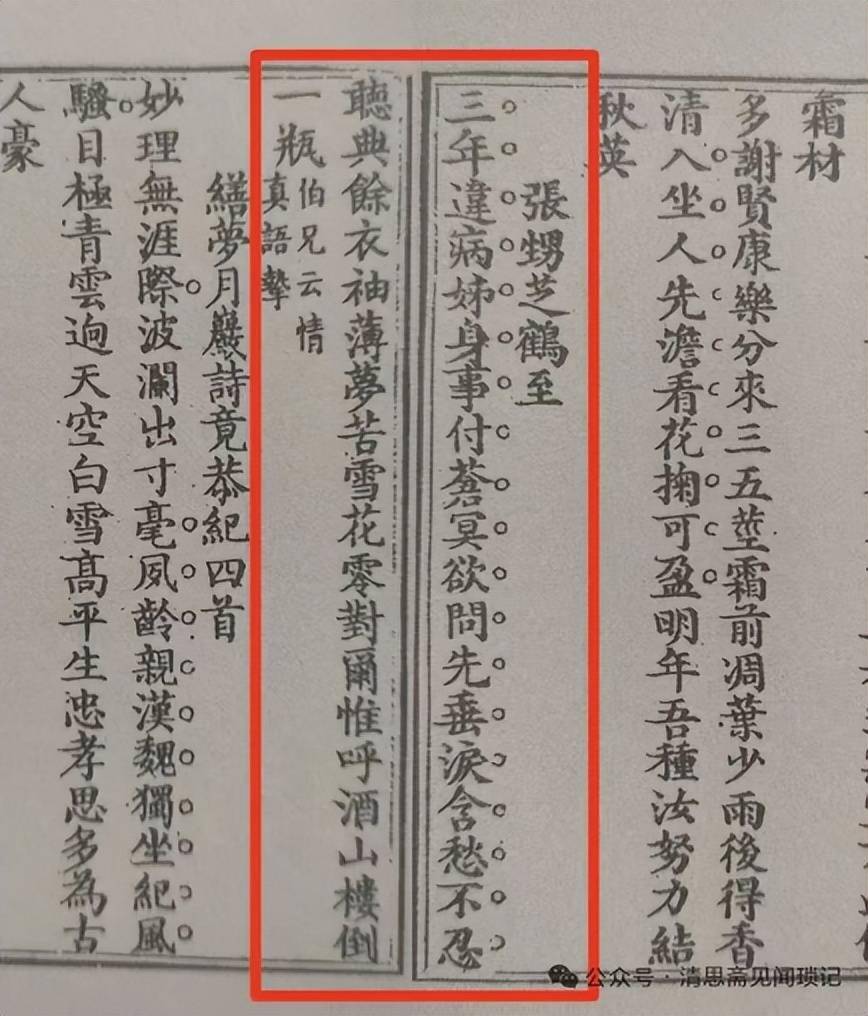 霜材
多謝賢康樂分來三五莖霜前凋葉少雨後得香
清入坐人先澹看花掬可盈明年吾種汝努力結
秋英
張甥芝鶴至
三年違病姊身事付蒼冥欲問先垂淚含愁不忍
聽典餘衣袖薄夢苦雪花零對爾惟呼酒山樓倒
一瓶
伯兄云情
真語摯
繕夢月巖詩竟恭紀四首
妙理無涯際波瀾出寸毫夙齡親漢魏獨坐紀風
騷目極青雲迥天空白雪高平生忠孝思多為古
人豪
公众号·清思斋见闻琐记